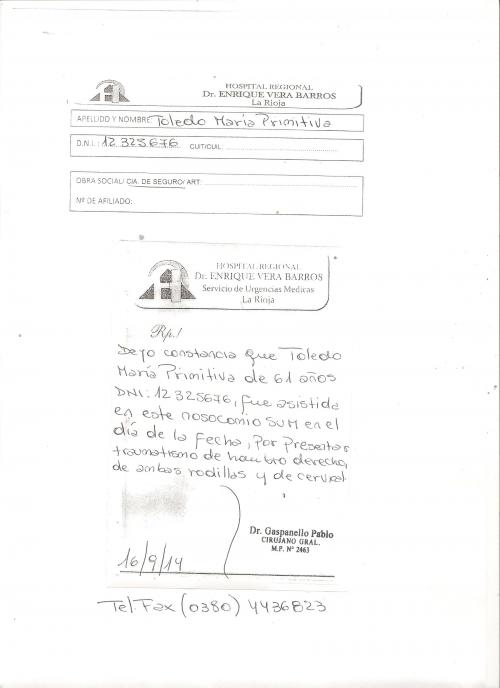 HOSPITAL REGIONAL
Dr. ENRIQUE VERA BARROS
La Rioja
APELLIDO Y NOMBRE: Toledo María Primitiva
D.N.I.: 12 325676 CUIT/CUIL:
OBRA SOCIAL/ CIA. DE SEGURO/ ART:
Nº DE AFILIADO:
HOSPITAL REGIONAL
Dr. ENRIQUE VERA BARROS
Servicio de Urgencias Medicas
La Rioja
Rp./
Dejo constancia que Toledo
María Primitiva de 61 años
DNI: 12325676, fue asistida
en este nosocomio SUM en el
día de la fecha, por presentar
traumatismo de hombro derecho,
de ambas rodillas y de cervical
Dr. Gaspanello Pablo
CIRUJANO GRAL.
M.P. Nº 2463
16/9/14
Tel. Fax (0380) 4436823